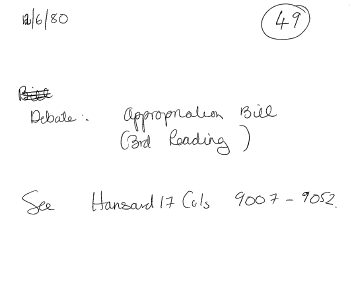 12/6/80
49
Debate:. Appropriation Bill
(3rd Reading)
See Hansard 17 Cols 9007 - 9052.